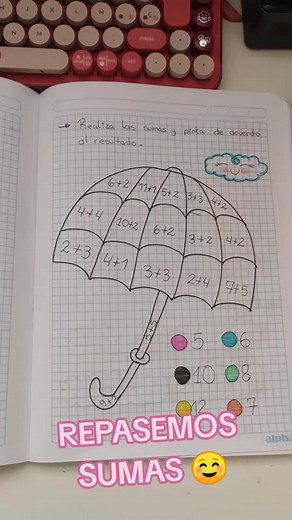 → Realiza las sumas y pinta de acuerdo
al resultado.
6+2 11+1 5+2 3+3 4+2
4+4 10+2 6+2 3+2 4+2
2+3 4+1 3+3 2+4 7+5
5 6
10 8
12 7
REPASEMOS
SUMAS ☺️
alpha